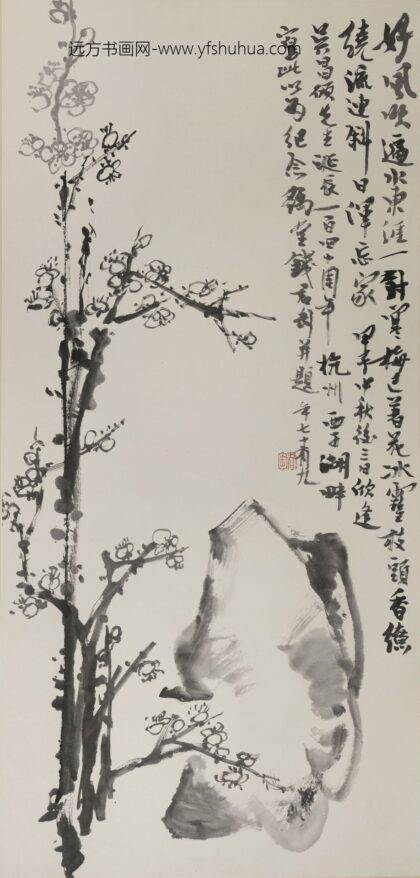 远方书画网-www.yfshuhua.com
妙风吹遍水东涯一对寒梅已著花冰雪枝头香缭
绕流连斜日浑忘家 甲子中秋后三日欣逢
吴昌硕先生诞辰一百四十周年 杭州西子湖畔
写此以为纪念 鹤堂钱君匋并题 年七十有九